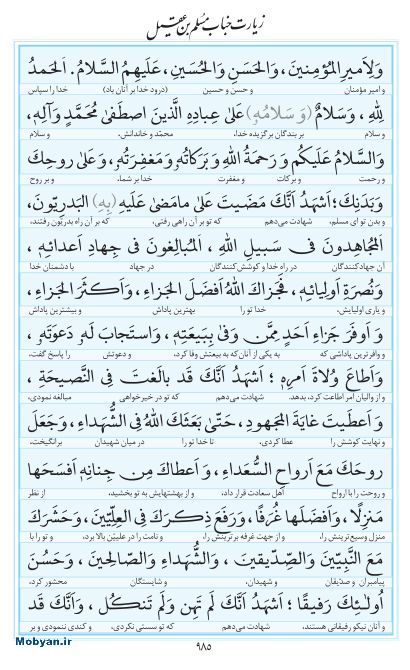 زیارت جناب مُسلم بن عقیل
وَلِأَمیرِ المُؤمِنینَ، وَالحَسَنِ وَالحُسَینِ، عَلَیهِمُ السَّلامُ. اَلحَمدُ
و امیر مؤمنان و حسن و حسین (درود خدا بر آنان باد) خدا را سپاس
لِلّٰهِ، وَسَلامٌ (وَ سَلامُهُ) عَلیٰ عِبادِهِ الَّذینَ اصطَفیٰ مُحَمَّدٍ وَآلِهِ،
و سلام بر بندگان برگزیده خدا، محمّد و خاندانش، و سلام
وَالسَّلامُ عَلَیکُم وَ رَحمَةُ اللهِ وَ بَرَکاتُهُ وَمَغفِرَتُهُ، وَعَلیٰ روحِکَ
و رحمت و برکات و مغفرت خدا بر شما، و بر روح
وَبَدَنِکَ؛ اَشهَدُ اَنَّکَ مَضَیتَ عَلیٰ مامَضیٰ عَلَیهِ (بِهِ) البَدرِیّونَ،
و بدن تو ای مسلم، شهادت می‌دهم که تو بر آن راهی رفتی، که بر آن بدریّون رفتند،
المُجاهِدونَ فی سَبیلِ اللهِ، اَلمُبالِغونَ فی جِهادِ اَعدائِهِ،
آن جهادکنندگان در راه خدا و کوشش‌کنندگان در جهاد با دشمنان خدا
وَنُصرَةِ اَولِیائِهِ، فَجَزاکَ اللهُ اَفضَلَ الجَزاءِ، وَ اَکثَرَ الجَزاءِ،
و یاری اولیایش، خدا تو را بهترین پاداش و بیشترین پاداش
وَ اَوفَرَ جَزاءِ اَحَدٍ مِمَّن وَفیٰ بِبَیعَتِهِ، وَاستَجابَ لَهُ دَعوَتَهُ،
و وافرترین پاداشی که به یکی از آنان که به بیعتش وفا کرد، و دعوتش را پاسخ گفت،
وَ اَطاعَ وُلاةَ اَمرِهِ؛ اَشهَدُ اَنَّکَ قَد بالَغتَ فِی النَّصیحَةِ،
و از والیان امر اطاعت کرد، بدهد. شهادت می‌دهم که تو در خیرخواهی مبالغه نمودی،
وَ اَعطَیتَ غایَةَ المَجهودِ، حَتّیٰ بَعَثَکَ اللهُ فِی الشُّهَداءِ، وَجَعَلَ
و نهایت کوشش را عطا کردی، تا خدا تو را در میان شهیدان برانگیخت،
روحَکَ مَعَ اَرواحِ السُّعَداءِ، وَ اَعطاکَ مِن جِنانِهِ اَفسَحَها
و روحت را با ارواح اهل سعادت قرار داد، و از بهشتهایش به تو بخشید، از نظر
مَنزِلًا، وَاَفضَلَها غُرَفًا، وَرَفَعَ ذِکرَکَ فِی العِلِّیّینَ، وَحَشَرَکَ
منزل وسیع‌ترینش را، و از جهت غرفه برترینش را، و نامت را در علیّین بالا برد، و تو را با
مَعَ النَّبِیّینَ وَالصِّدّیقینَ، وَالشُّهَداءِ وَالصّالِحینَ، وَحَسُنَ
پیامبران و صدّیقان و شهیدان، و شایستگان محشور کرد،
اُولٰئِکَ رَفیقًا؛ اَشهَدُ اَنَّکَ لَم تَهِن وَلَم تَنکُل، وَاَنَّکَ قَد
و آنان نیکو رفیقانی هستند، شهادت می‌دهم که تو سستی نکردی، و کندی ننمودی و بر
۹۸۵
Mobyan.ir